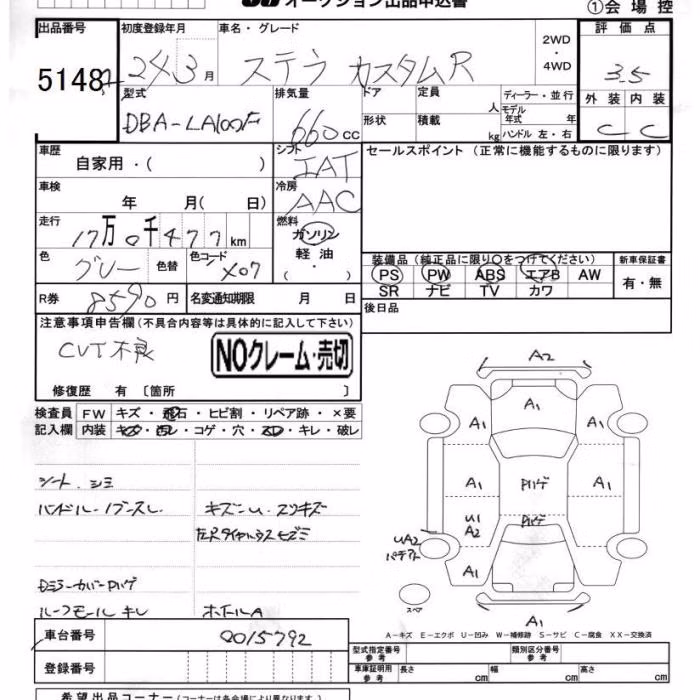 オークション出品申込書
①会場控
出品番号 初度登録年月 車名・グレード 2WD・4WD 評価点
5148 24 3月 ステラ カスタムR 3.5
型式 排気量 ドア 定員 人 ディーラー・並行 外装 内装
DBA-LA100F 660cc 形状 積載 kg モデル年式 年 ハンドル 左・右 C C
車歴 シフト セールスポイント (正常に機能するものに限ります)
自家用・( ) IAT
車検 冷房
年 月( 日) AAC
走行 燃料
17万0千477km ガソリン
軽油
( ・ )
色 グレー 色替 色コード X07
装備品(純正品に限り○をつけてください) 新車保証書
PS PW ABS エアB AW 有・無
SR ナビ TV カワ
R券 8590円 名変通知期限 月 日 後日品
注意事項申告欄(不具合内容等は具体的に記入して下さい)
CVT不良
NOクレーム・売切
修復歴 有 〔箇所 〕
検査員 FW キズ・飛石・ヒビ割・リペア跡・×要
記入欄 内装 コゲ・穴・ キレ・破レ
シート シミ
キズ
ルーフモール キレ ホイールA
A2
A1
A1 A1
A1 Pハゲ A1
U1
A2 Pハゲ
UA2
A1
スペア
A1
A-キズ E-エクボ U-凹み W-補修跡 S-サビ C-腐食 XX-交換済
車台番号 0015792
登録番号
型式指定番号 参考 類別区分番号 参考
車庫証明用 参考 長さ cm 幅 cm 高さ cm
希望出品コーナー(コーナーは各会場により異なります。)